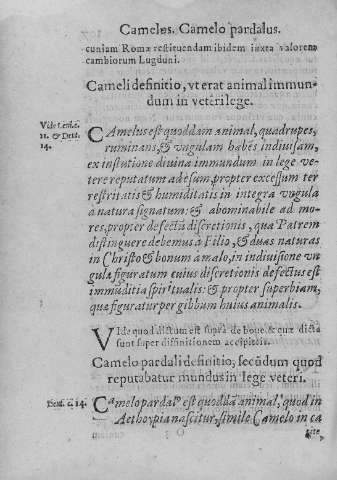 Camelus. Camelo pardalus.
cuniam Romæ restituendam ibidem iuxta valorem
cambiorum Lugduni.
Cameli definitio, vt erat animal immun-
dum in veteri lege.
Vide Leuit.
11. & Deut.
14.
CAmelus est quoddam animal, quadrupes,
ruminans, & vngulam habẽs indiuisam,
ex institutione diuina immundum in lege ve-
tere reputatum ad esum, propter excessum ter
restritatis & humiditatis in integra vngula
à natura signatum: & abominabile ad mo-
res, propter defectũ discretionis, qua Patrem
distinguere debemus à Filio, & duas naturas
in Christo & bonum à malo, in indiuisione vn
gulæ figuratum cuius discretionis defectus est
immũditia spiritualis: & propter superbiam,
quæ figuratur per gibbum huius animalis.
VIde quod dictum est supra de boue, & quæ dicta
sunt super diffinitionem accipitris.
Camelo pardali definitio, secũdum quod
reputabatur mundus in lege veteri.
Deut. c. 14.
CAmelopardalꝰ est quoddã animal, quod in
Aethiopia nascitur, simile Camelo in ca
pite,